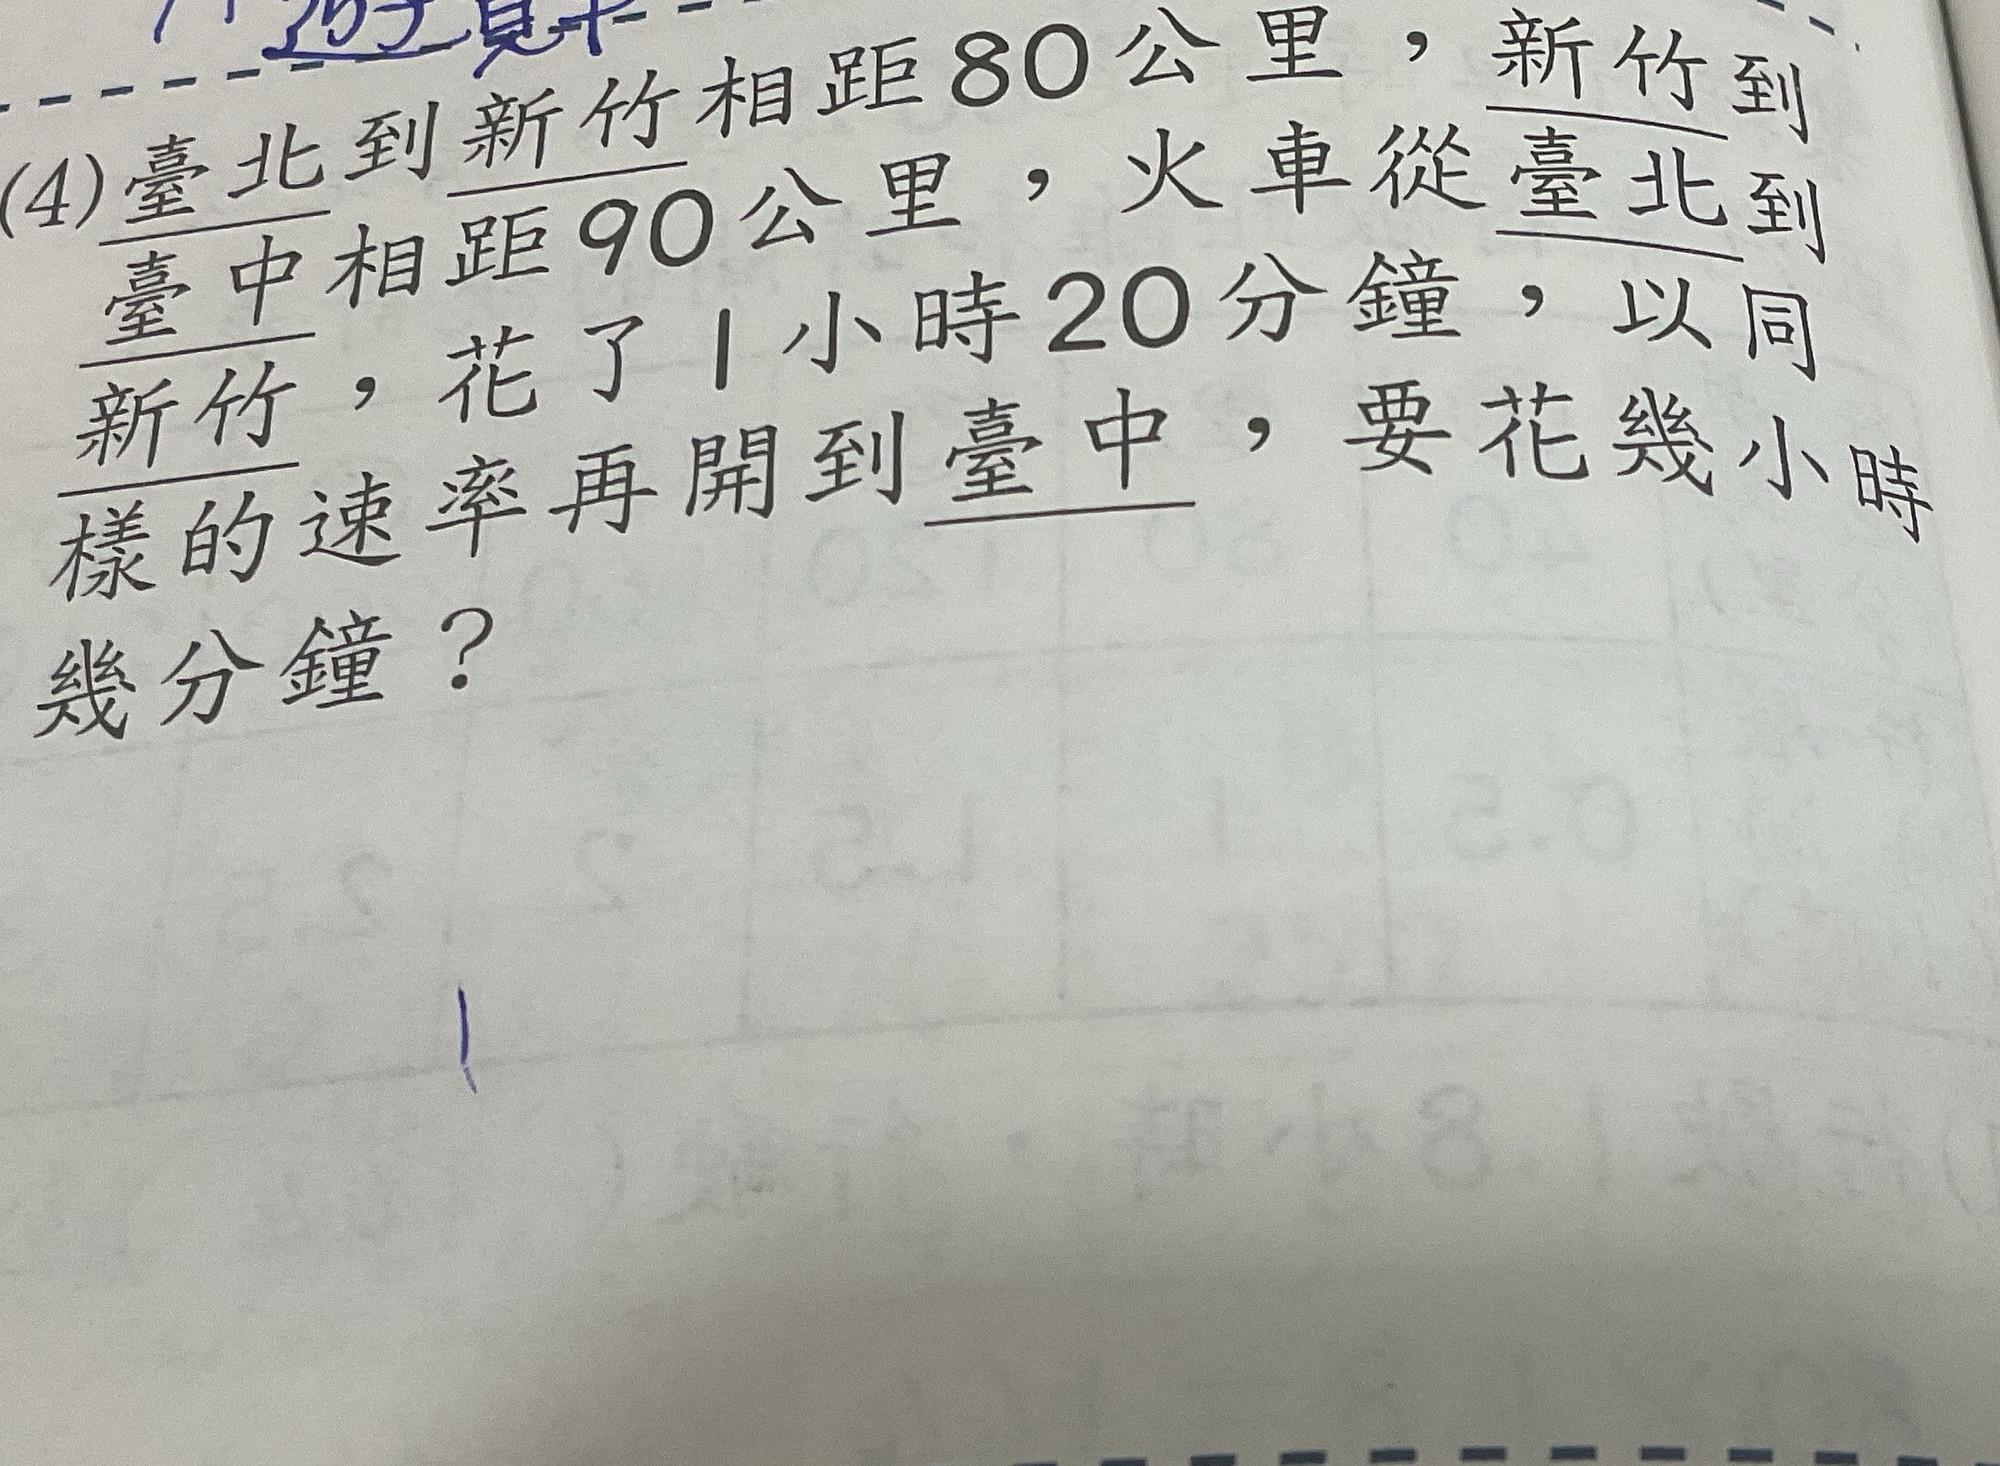 (4)臺北到新竹相距80公里，新竹到
臺中相距90公里，火車從臺北到
新竹，花了1小時20分鐘，以同
樣的速率再開到臺中，要花幾小時
幾分鐘？